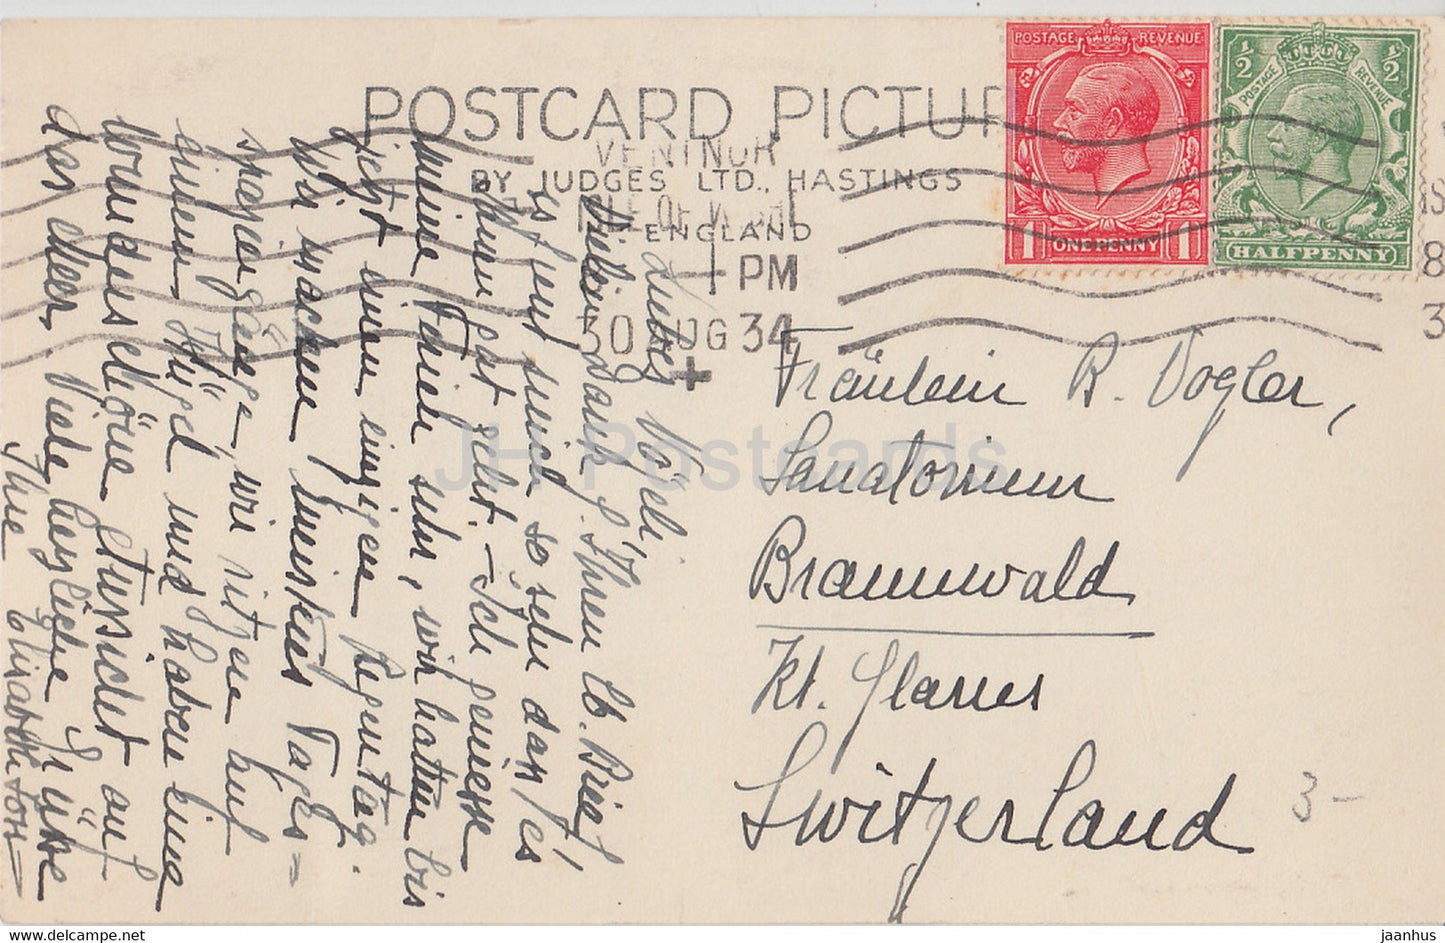 POSTCARD PICTUR
BY JUDGES LTD., HASTINGS
ENGLAND
VENTNOR
ISLE OF WIGHT
1 PM
30 AUG 34
POSTAGE REVENUE
1 ONE PENNY 1
½ ½
POSTAGE REVENUE
HALFPENNY
Liebes Vögeli,
Vielen Dank f. Ihren lb. Brief
es freut mich so sehr dass es
Ihnen gut geht. – Ich geniesse
meine Ferien sehr, wir hatten bis
jetzt einen einzigen Regentag.
Wir machen meistens Tages=
spaziergänge, wir sitzen auf
einem Hügel und haben eine
wunderschöne Aussicht auf
das Meer. Viele herzliche Grüsse
Ihre
Fräulein B. Vogler,
Sanatorium
Braunwald
Kt. Glarus
Switzerland
3-
JH Postcards
www.delcampe.net
jaanhus